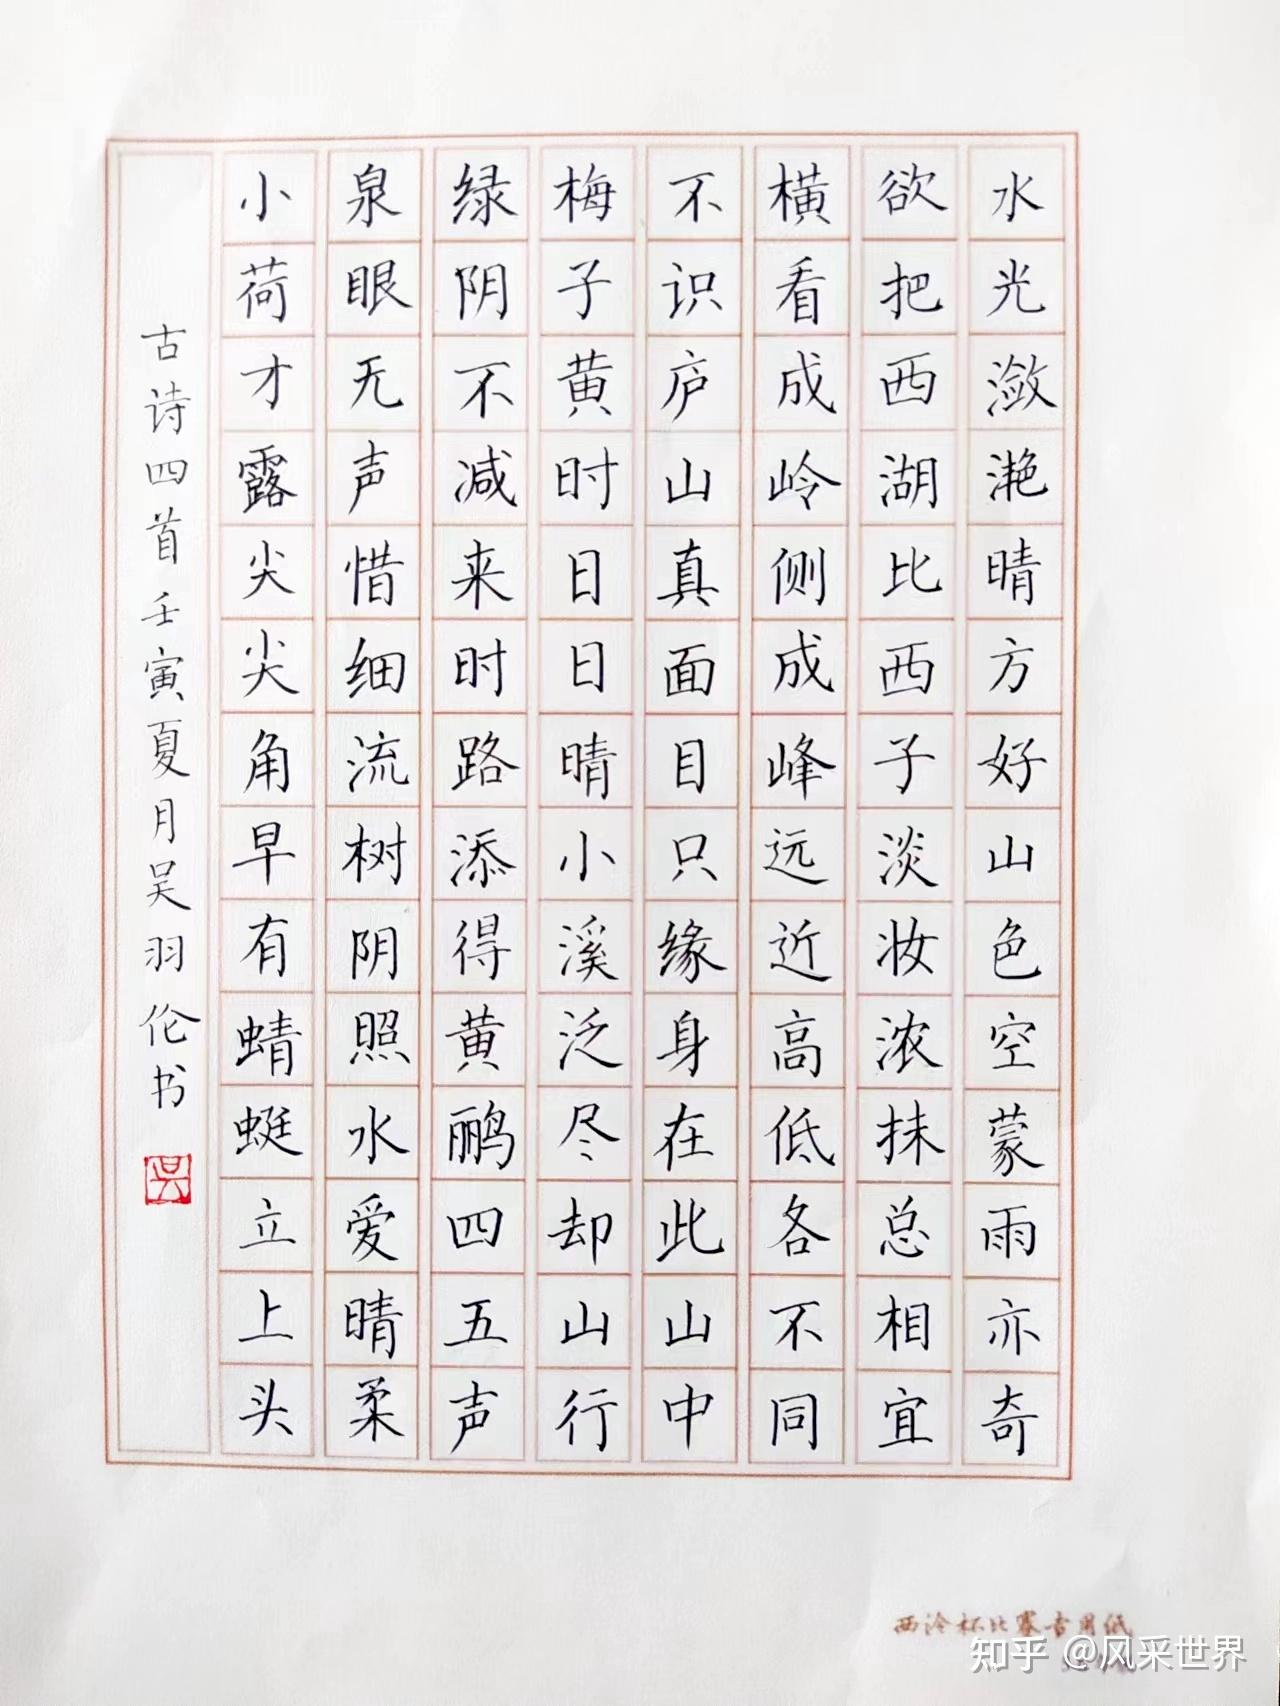 水光潋滟晴方好山色空蒙雨亦奇
欲把西湖比西子淡妆浓抹总相宜
横看成岭侧成峰远近高低各不同
不识庐山真面目只缘身在此山中
梅子黄时日日晴小溪泛尽却山行
绿阴不减来时路添得黄鹂四五声
泉眼无声惜细流树阴照水爱晴柔
小荷才露尖尖角早有蜻蜓立上头
古诗四首壬寅夏月吴羽伦书
吴
西泠杯比赛专用纸
知乎 @风采世界